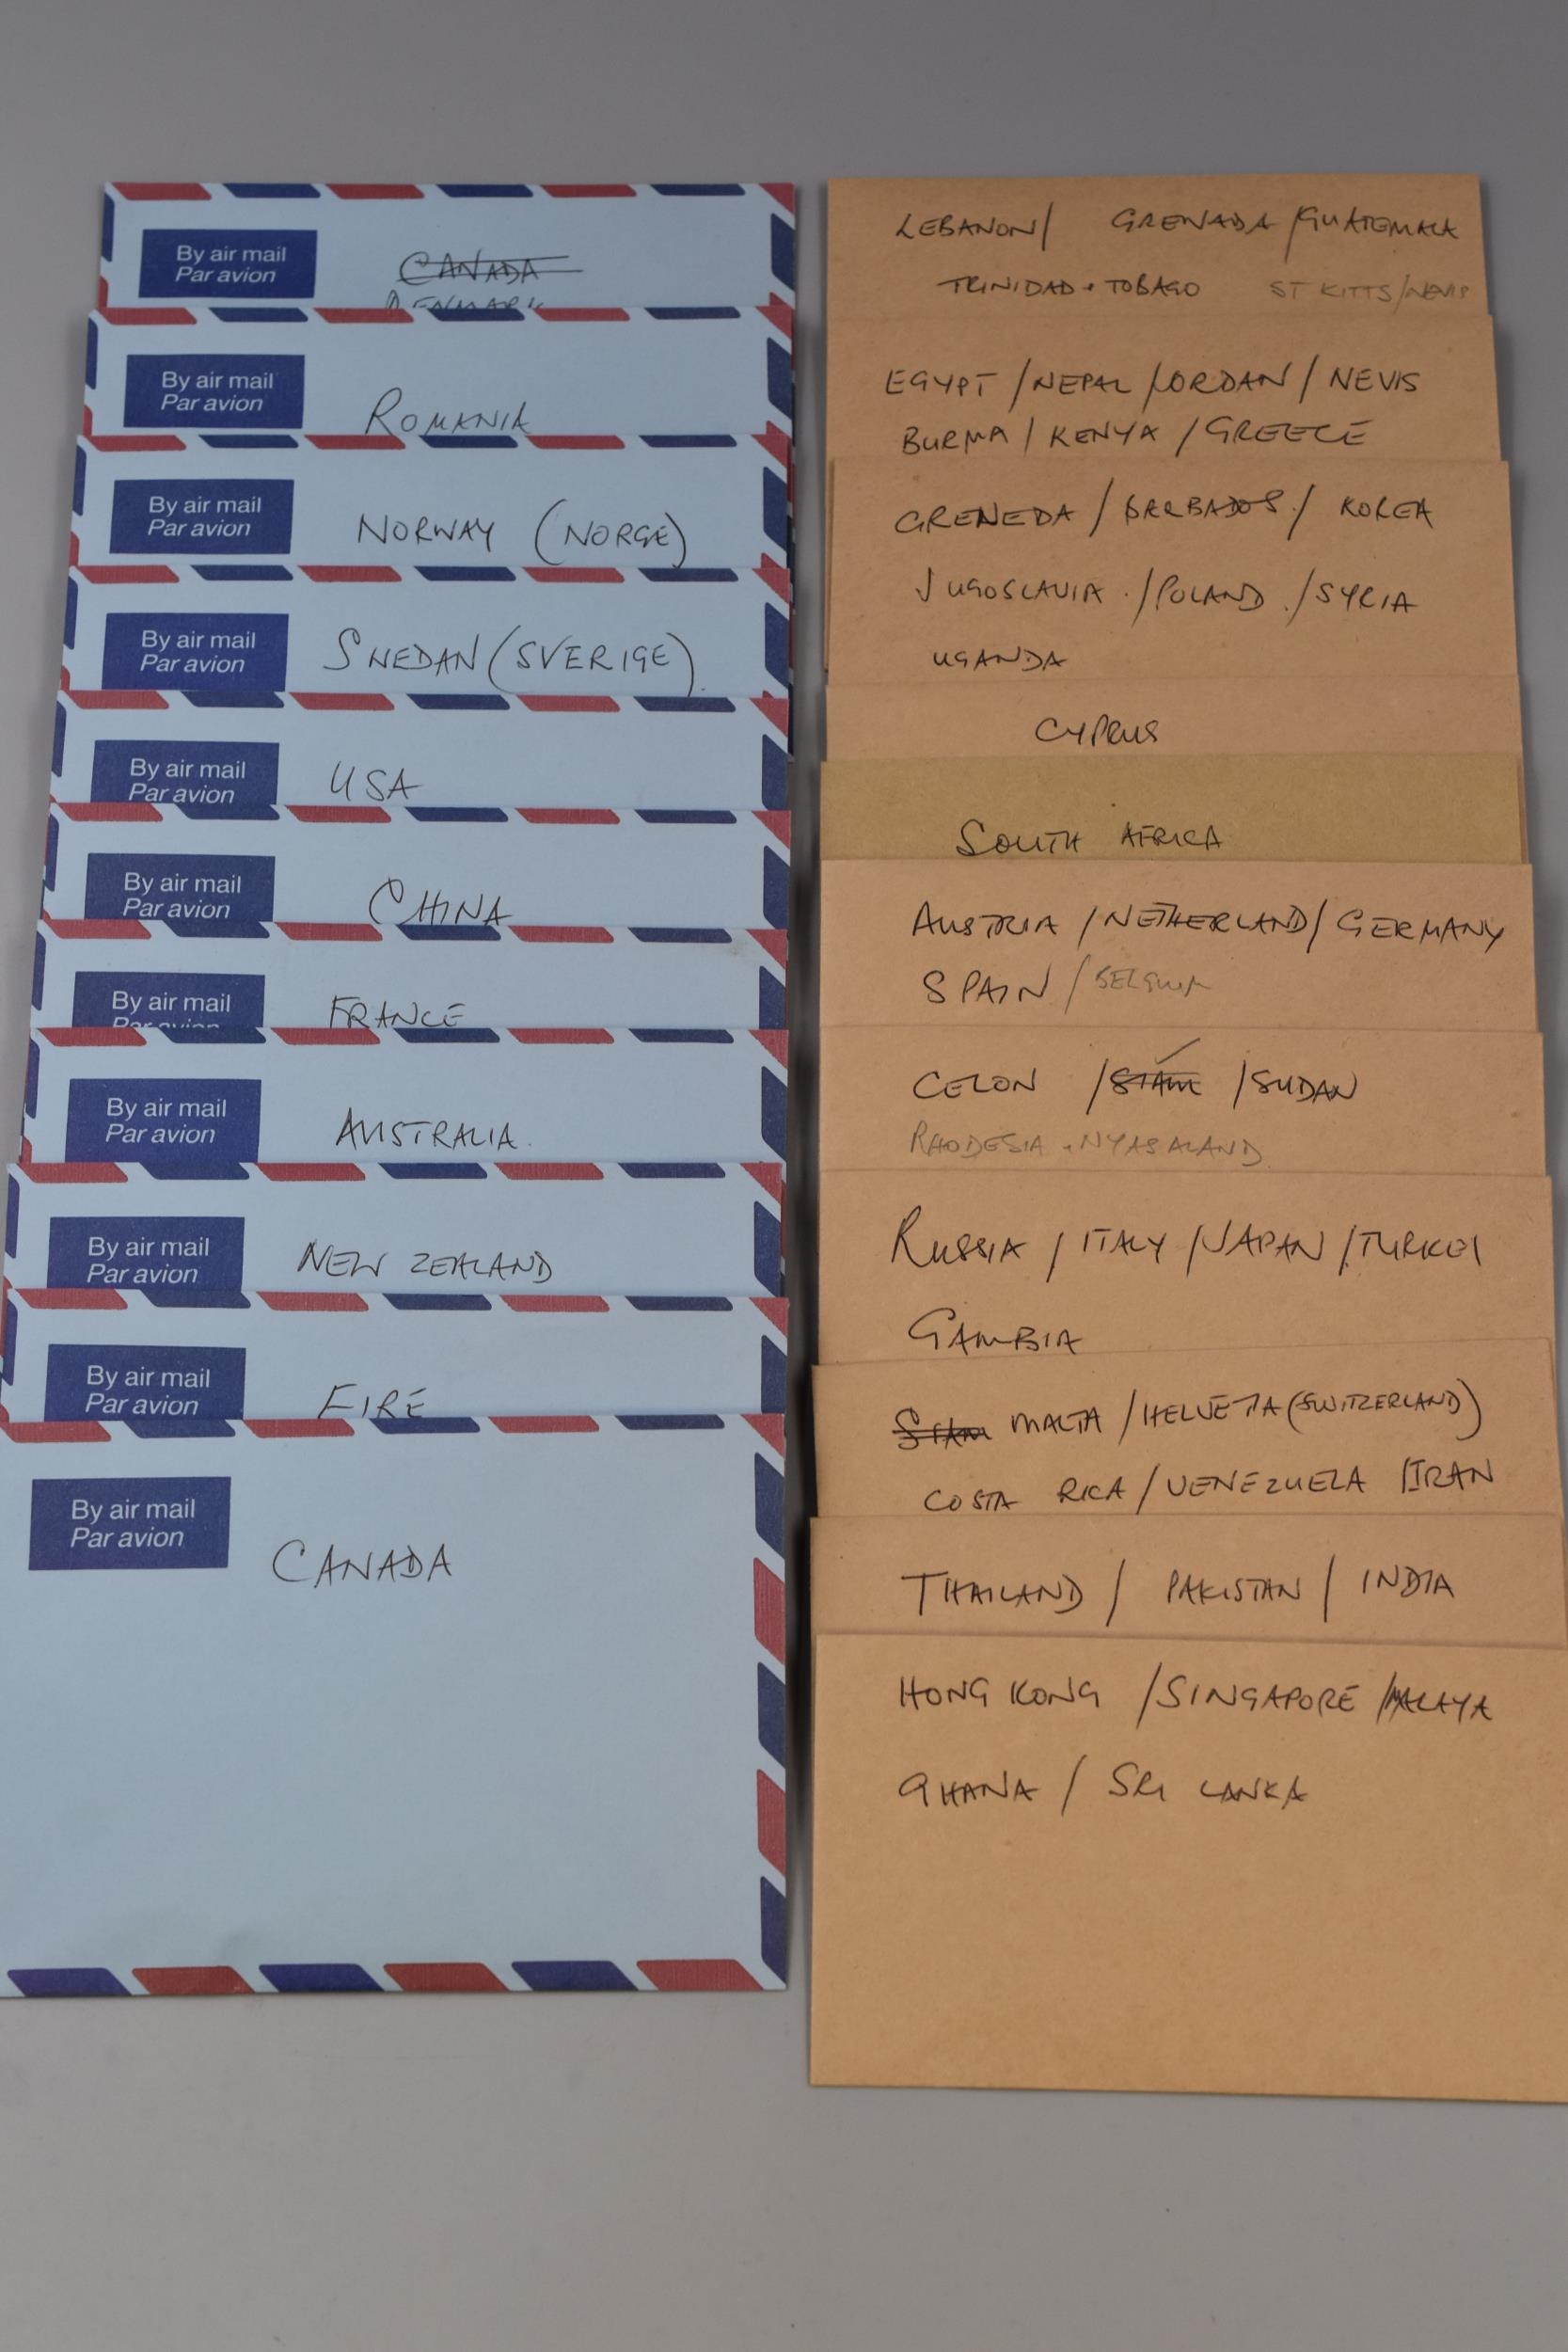 By air mail
Par avion
CANADA
DENMARK
By air mail
Par avion
ROMANIA
By air mail
Par avion
NORWAY (NORGE)
By air mail
Par avion
SWEDAN (SVERIGE).
By air mail
Par avion
USA
By air mail
Par avion
CHINA
By air mail
Par avion
FRANCE
By air mail
Par avion
AUSTRALIA.
By air mail
Par avion
NEW ZEALAND
By air mail
Par avion
EIRE
By air mail
Par avion
CANADA
LEBANON/ GRENADA /GUATEMALA
TRINIDAD + TOBAGO ST KITTS/NEVIS
EGYPT /NEPAL /JORDAN / NEVIS
BURMA / KENYA / GREECE
GRENEDA / BARBADOS / KOREA
JUGOSLAVIA ./POLAND ./SYRIA
UGANDA
CYPRUS
SOUTH AFRICA
AUSTRIA /NETHERLAND/ GERMANY
SPAIN / BELGIUM
CELON /SIAM /SUDAN
RHODESIA + NYASALAND
RUSSIA / ITALY /JAPAN /TURKEI
GAMBIA
SIAM MALTA /HELVETIA (SWITZERLAND)
COSTA RICA / VENEZUELA /IRAN
THAILAND / PAKISTAN / INDIA
HONG KONG /SINGAPORE /MALAYA
GHANA / SRI LANKA